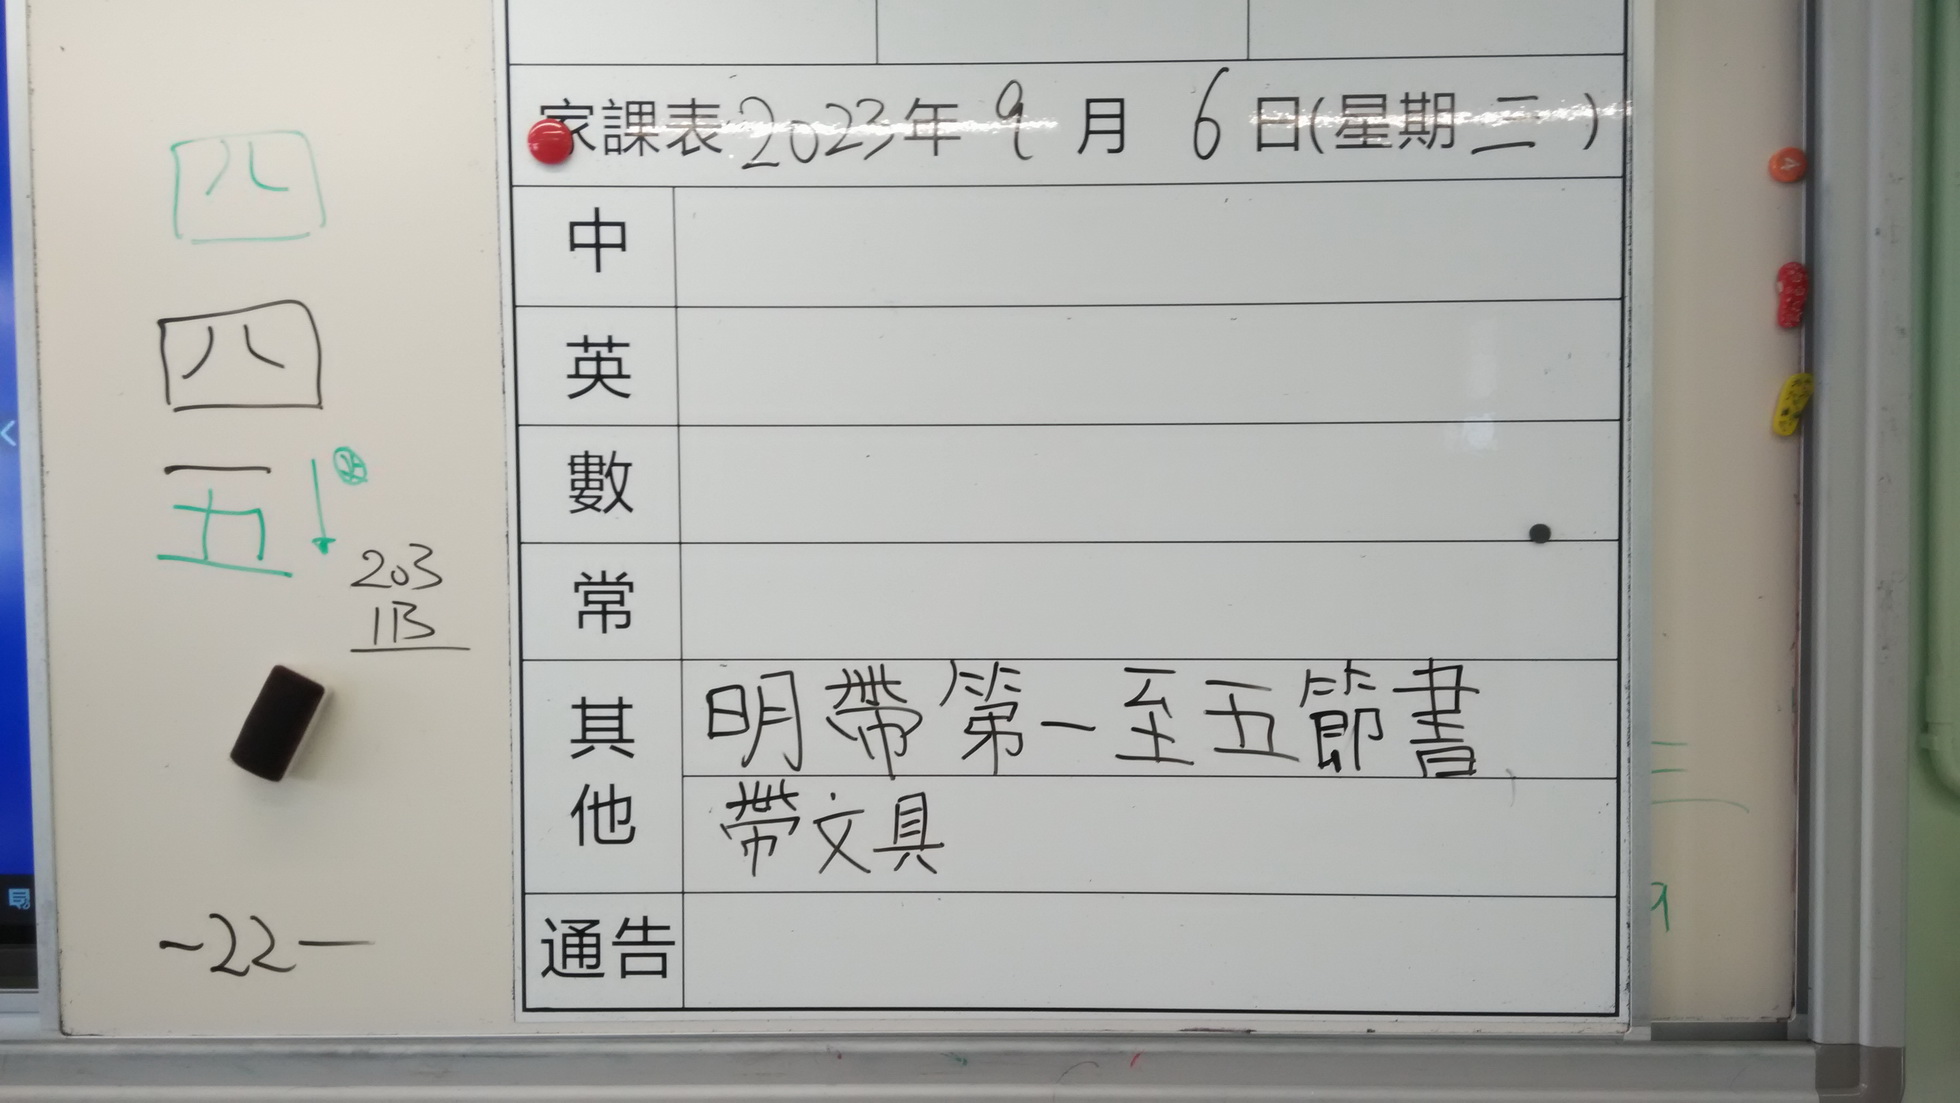 家課表 2023年 9 月 6 日(星期 三 )
中
英
數
常
其他
明帶第一至五節書
帶文具
通告
四
四
五
203
1B
-22-